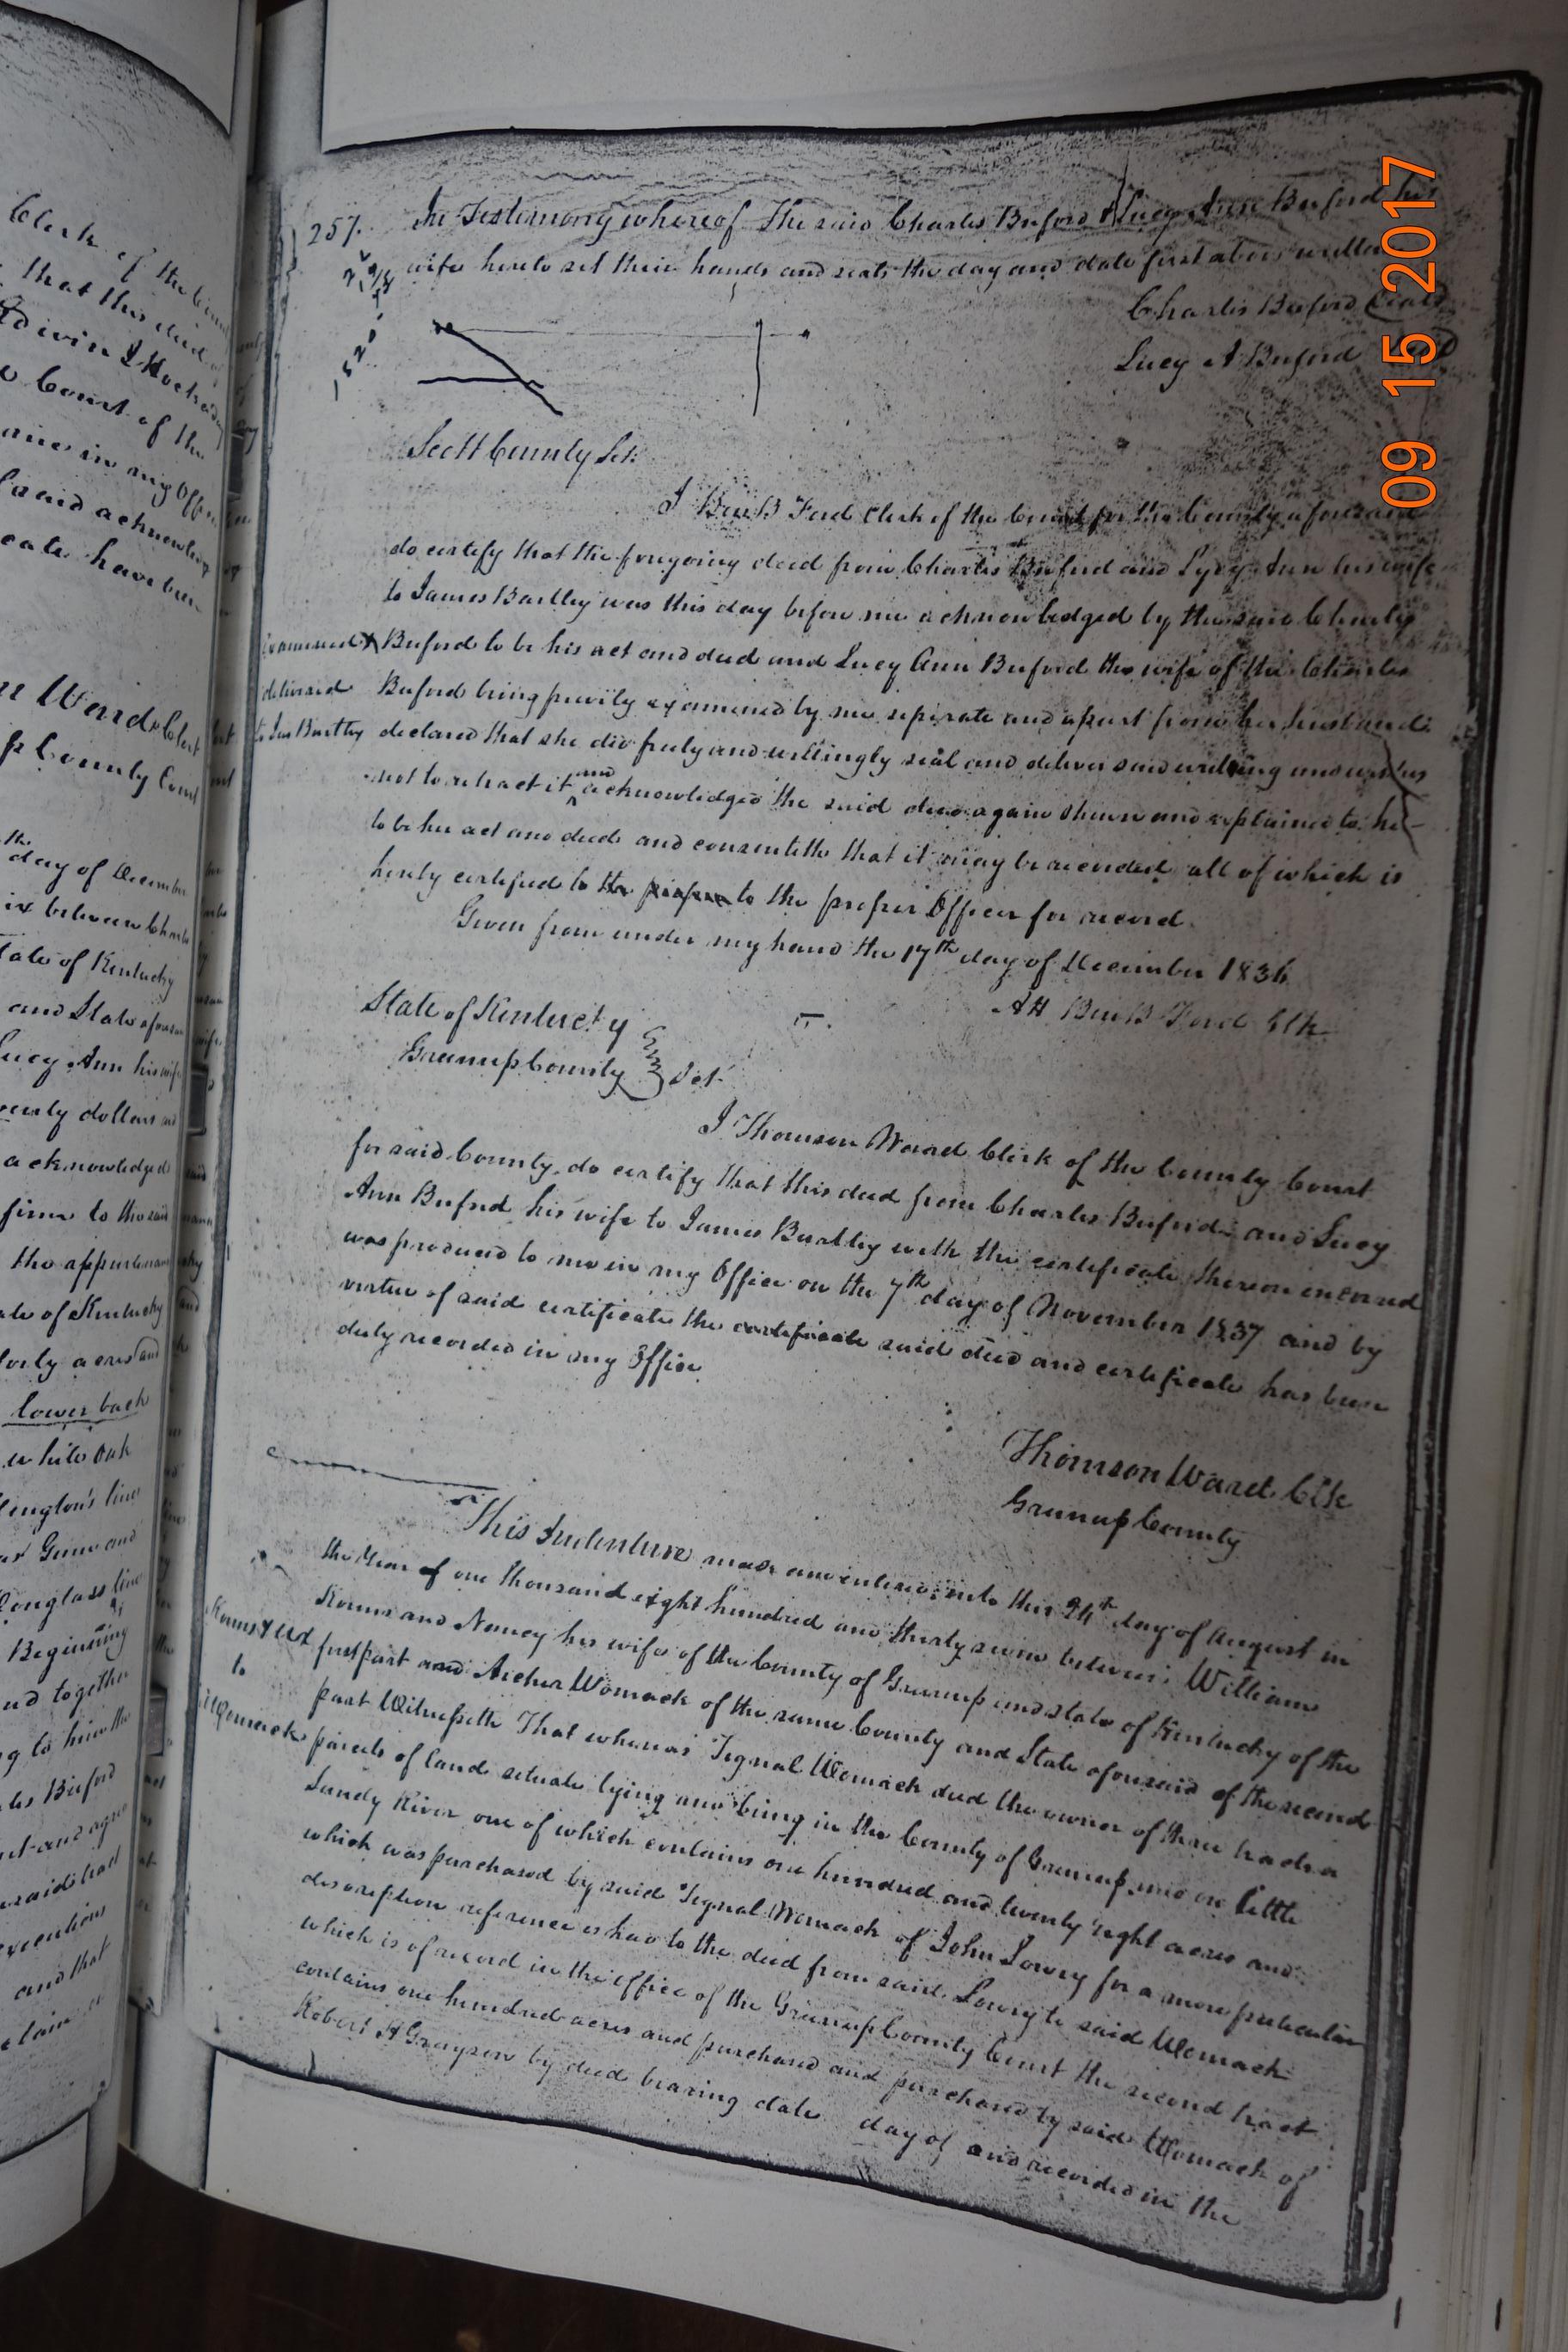 257.
In Testimony whereof The said Charles Buford & Lucy Ann Buford his
wife hereto set their hands and seals the day and date first above written
Charles Buford (Seal)
Lucy A Buford
Scott County Sct:
I Ben B Ford Clerk of the Court for the County aforesaid
do certify that the foregoing deed from Charles Buford and Lucy Ann his wife
to James Bartley was this day before me acknowledged by the said Charles
Buford to be his act and deed and Lucy Ann Buford the wife of the Charles
Buford being privily examined by me seperate and apart from her husband
declared that she did freely and willingly seal and deliver said writing and wishes
not to retract it and acknowledged the said deed again shewn and explained to her
to be her act and deed and consenteth that it may be recorded all of which is
hereby certified to the proper to the proper Officer for record.
Given from under my hand the 17th day of December 1836
Att Ben B Ford Clk
examined X
delivered
to Jas Bartley
State of Kentucky
Greenup County Sct
I Thomson Ward Clerk of the County Court
for said County, do certify that this deed from Charles Buford and Lucy
Ann Buford his wife to James Bartley with the certificate thereon endorsed
was produced to me in my Office on the 7th day of November 1837 and by
virtue of said certificate the certificate said deed and certificate has been
duly recorded in my Office
Thomson Ward Clk
Greenup County
This Indenture made and entered into this 24th day of August in
the Year of one thousand eight hundred and thirty seven between William
Kouns and Nancy his wife of the County of Greenup and state of Kentucky of the
first part and Archer Womack of the same County and State aforesaid of the second
part Witnesseth That whereas Tignal Womack died the owner of three tracts or
parcels of land situate lying and being in the County of Greenup and on little
Sandy River one of which contains one hundred and twenty eight acres and
which was purchased by said Tignal Womack of John Lowry for a more particular
description reference is had to the deed from said Lowry to said Womack
which is of record in the office of the Greenup County Court the second tract
contains one hundred acres and purchased and purchased by said Womack of
Robert H Grayson by deed bearing date day of and recorded in the
Kouns & Ux
to
Womack
Clerk of the
that this deed of
Court of the
in my Office
and acknowledg
cate have been
Ward Clerk
County Court
th day of December
between Charles
State of Kentucky
and State aforesaid
Lucy Ann his wife
dollars
acknowledged
to the said
the appurtenan
of Kentucky
forty acres and
lower back
white Oak
line
and
Douglass line
Beginning
and together
to him the
Buford
and agree
said had
executions
and that
claim
09 15 2017